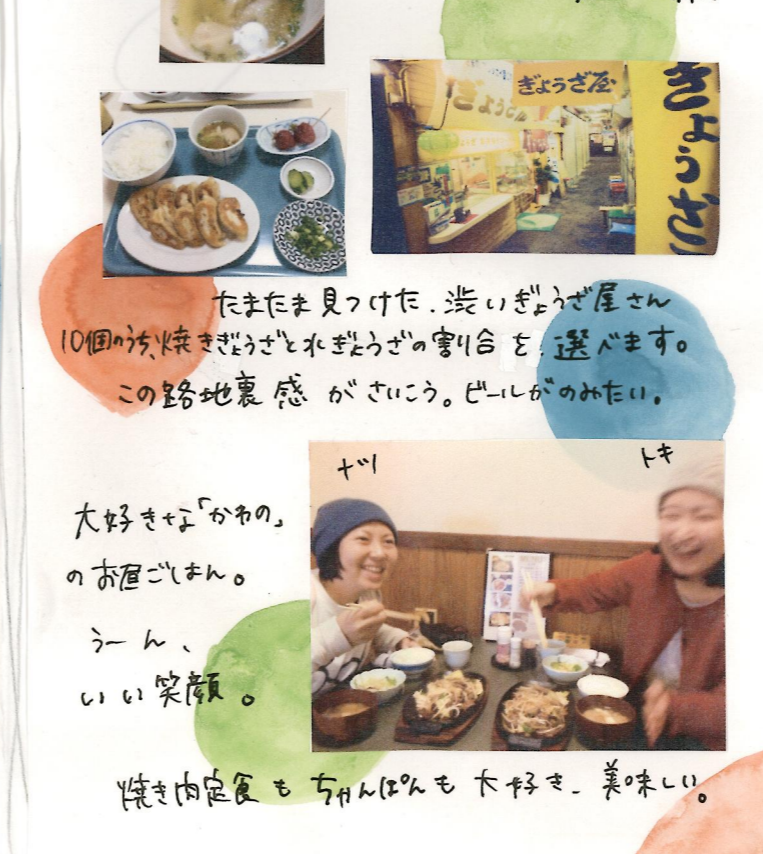 ぎょうざ屋
ぎょうざ
たまたま見つけた、渋いぎょうざ屋さん
10個のうち、焼きぎょうざと水ぎょうざの割合を選べます。
この路地裏感がさいこう。ビールがのみたい。
ナツ
トキ
大好きな「かわの」
のお昼ごはん。
うーん、
いい笑顔。
焼き肉定食もちゃんぽんも大好き、美味しい。